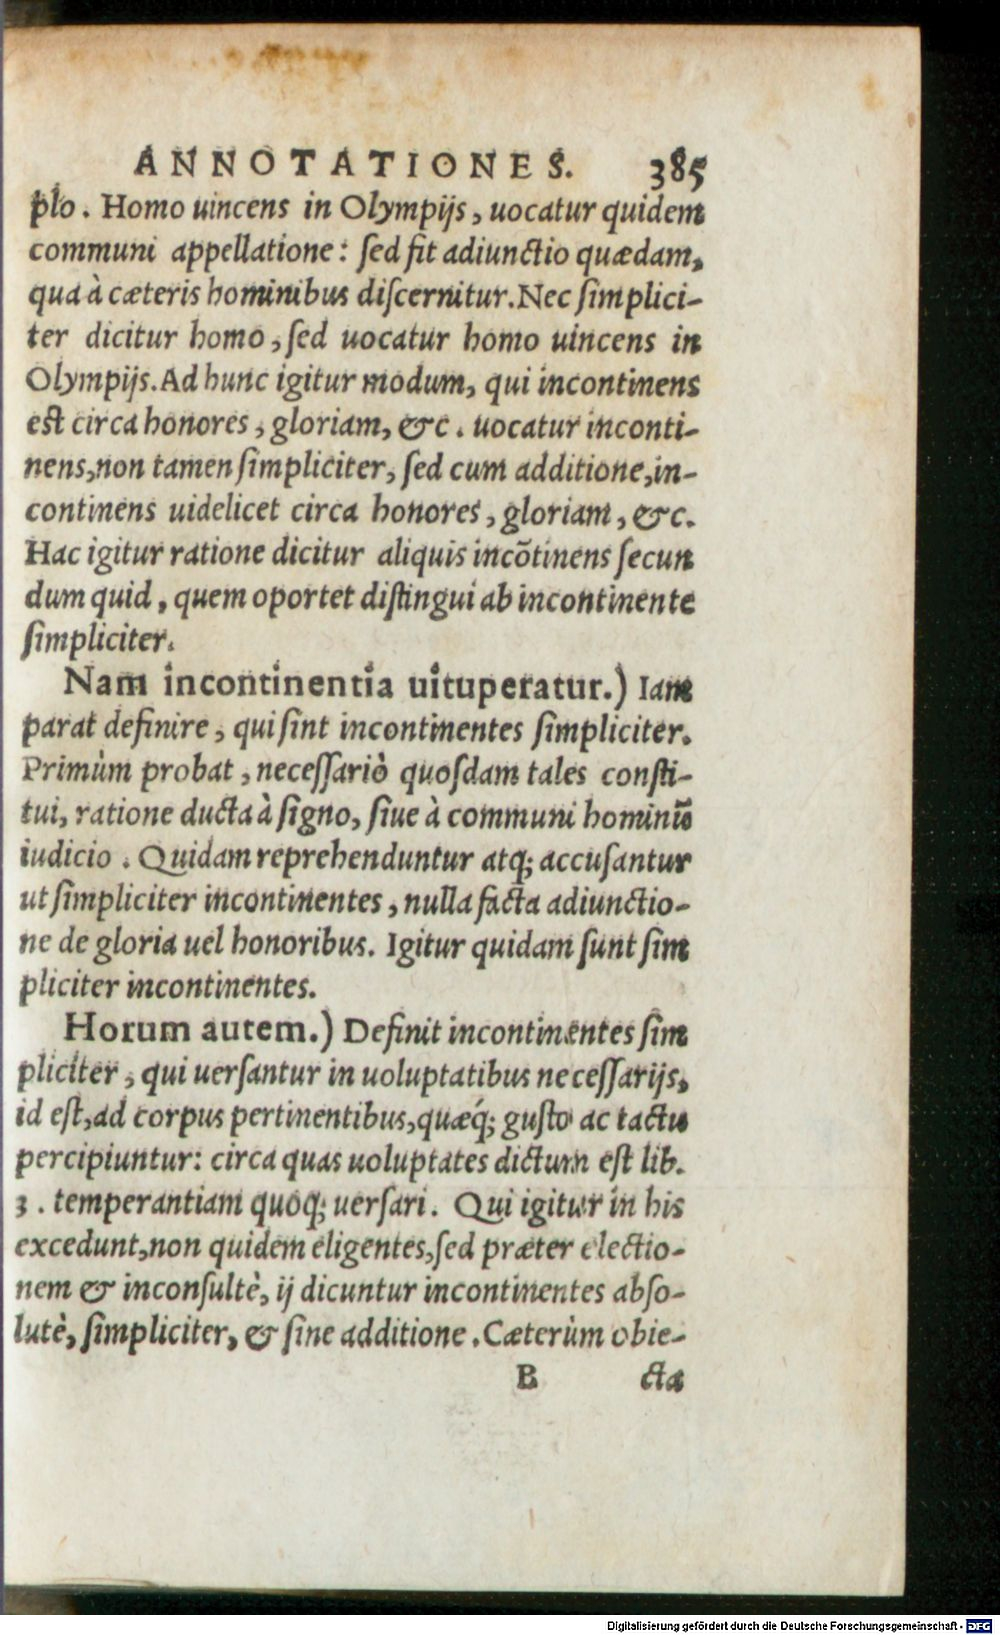 ANNOTATIONES. 385
plo. Homo uincens in Olympijs, uocatur quidem
communi appellatione: ſed fit adiunctio quædam,
qua à cæteris hominibus diſcernitur. Nec ſimplici-
ter dicitur homo, ſed uocatur homo uincens in
Olympijs. Ad hunc igitur modum, qui incontinens
eſt circa honores, gloriam, &c. uocatur inconti-
nens, non tamen ſimpliciter, ſed cum additione, in-
continens uidelicet circa honores, gloriam, &c.
Hac igitur ratione dicitur aliquis incōtinens ſecun
dum quid, quem oportet diſtingui ab incontinente
ſimpliciter.
Nam incontinentia uituperatur.) Iam
parat definire, qui ſint incontinentes ſimpliciter.
Primùm probat, neceſſariò quoſdam tales conſti-
tui, ratione ducta à ſigno, ſiue à communi hominū
iudicio. Quidam reprehenduntur atq; accuſantur
ut ſimpliciter incontinentes, nulla facta adiunctio-
ne de gloria uel honoribus. Igitur quidam ſunt ſim
pliciter incontinentes.
Horum autem.) Definit incontinentes ſim
pliciter, qui uerſantur in uoluptatibus neceſſarijs,
id eſt, ad corpus pertinentibus, quæq́; guſto ac tactu
percipiuntur: circa quas uoluptates dictum eſt lib.
3. temperantiam quoq; uerſari. Qui igitur in his
excedunt, non quidem eligentes, ſed præter electio-
nem & inconſultè, ij dicuntur incontinentes abſo-
lutè, ſimpliciter, & ſine additione. Cæterùm obie-
B cta
Digitalisierung gefördert durch die Deutsche Forschungsgemeinschaft - DFG